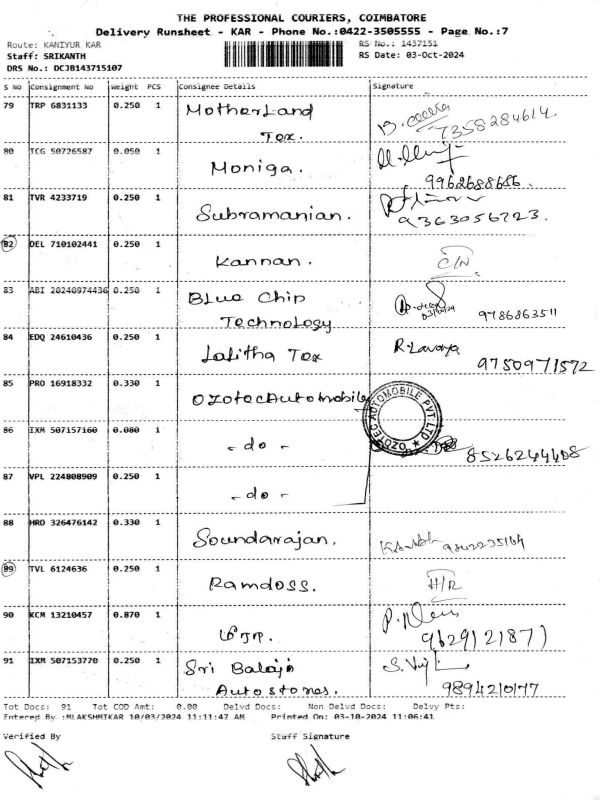 THE PROFESSIONAL COURIERS, COIMBATORE
Delivery Runsheet - KAR - Phone No.:0422-3505555 - Page No.:7
Route: KANIYUR KAR
RS No.: 1437151
Staff: SRIKANTH
RS Date: 03-Oct-2024
DRS No.: DCJB143715107
S No Consignment No Weight PCS Consignee Details Signature
79 TRP 6831133 0.250 1 Motherland
Tex. 7358284614.
80 TCG 50726587 0.050 1 Moniga.
9962688686.
81 TVR 4233719 0.250 1 Subramanian.
9363056723.
82 DEL 710102441 0.250 1 Kannan. C/N
83 ABI 20240974436 0.250 1 Blue Chip
Technology 9786863511
84 EDQ 24610436 0.250 1 Lalitha Tex R. Lavanya
9750971572
85 PRO 16918332 0.330 1 Ozotec Automobile
OZOTEC AUTOMOBILE PVT LTD
86 IXM 507157160 0.080 1 - do -
8526244408
87 VPL 224808909 0.250 1 - do -
88 HRD 326476142 0.330 1 Soundarajan.
89 TVL 6124636 0.250 1 Ramdoss. H/R
90 KCM 13210457 0.870 1
9629121871
91 IXM 507153770 0.250 1 Sri Balaji
Autostores. 9894210177
Tot Docs: 91 Tot COD Amt: 0.00 Delvd Docs: Non Delvd Docs: Delvy Pts:
Entered By :MLAKSHMIKAR 10/03/2024 11:11:47 AM Printed On: 03-10-2024 11:06:41
Verified By Staff Signature